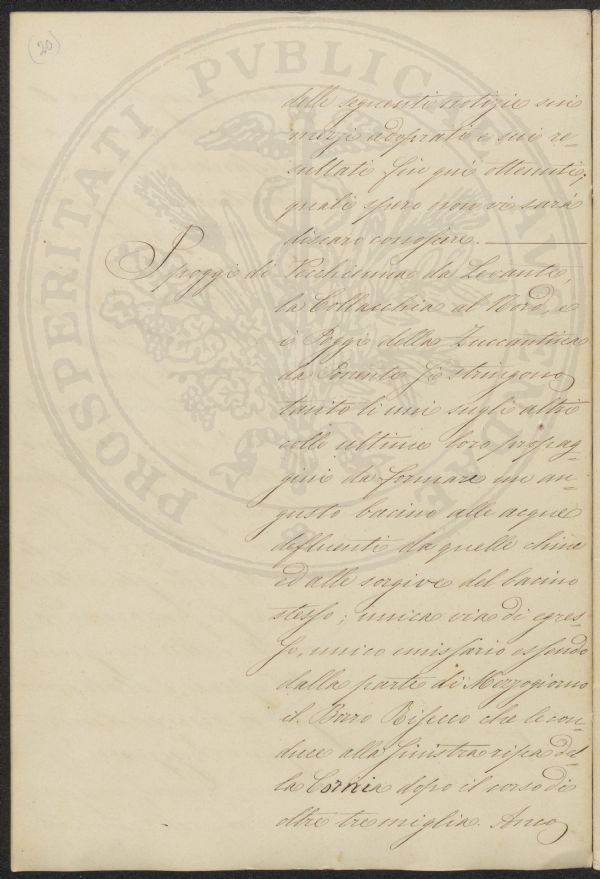 (20)
delle seguenti notizie sui
mezzi adoprati e sui re=
sultati fin qui ottenuti,
quali spero non vi sarà
discaro conoscere.
I poggi di Vecchienna da Levante,
la Collacchia al Nord, e
i Poggi della Zuccantina
da Ponente si stringono
tanto li uni sugli altri
colle ultime loro propag=
gini da formare un an=
gusto bacino alle acque
defluenti da quelle chine
ed alle sorgive del bacino
stesso; unica via di egres=
so, unico emissario essendo
dalla parte di Mezzogiorno
il Borro Risecco che le con=
duce alla sinistra ripa del=
la Cornia dopo il corso di
oltre tre miglia. Anco
PROSPERITATI PVBLICAE AVGENDAE